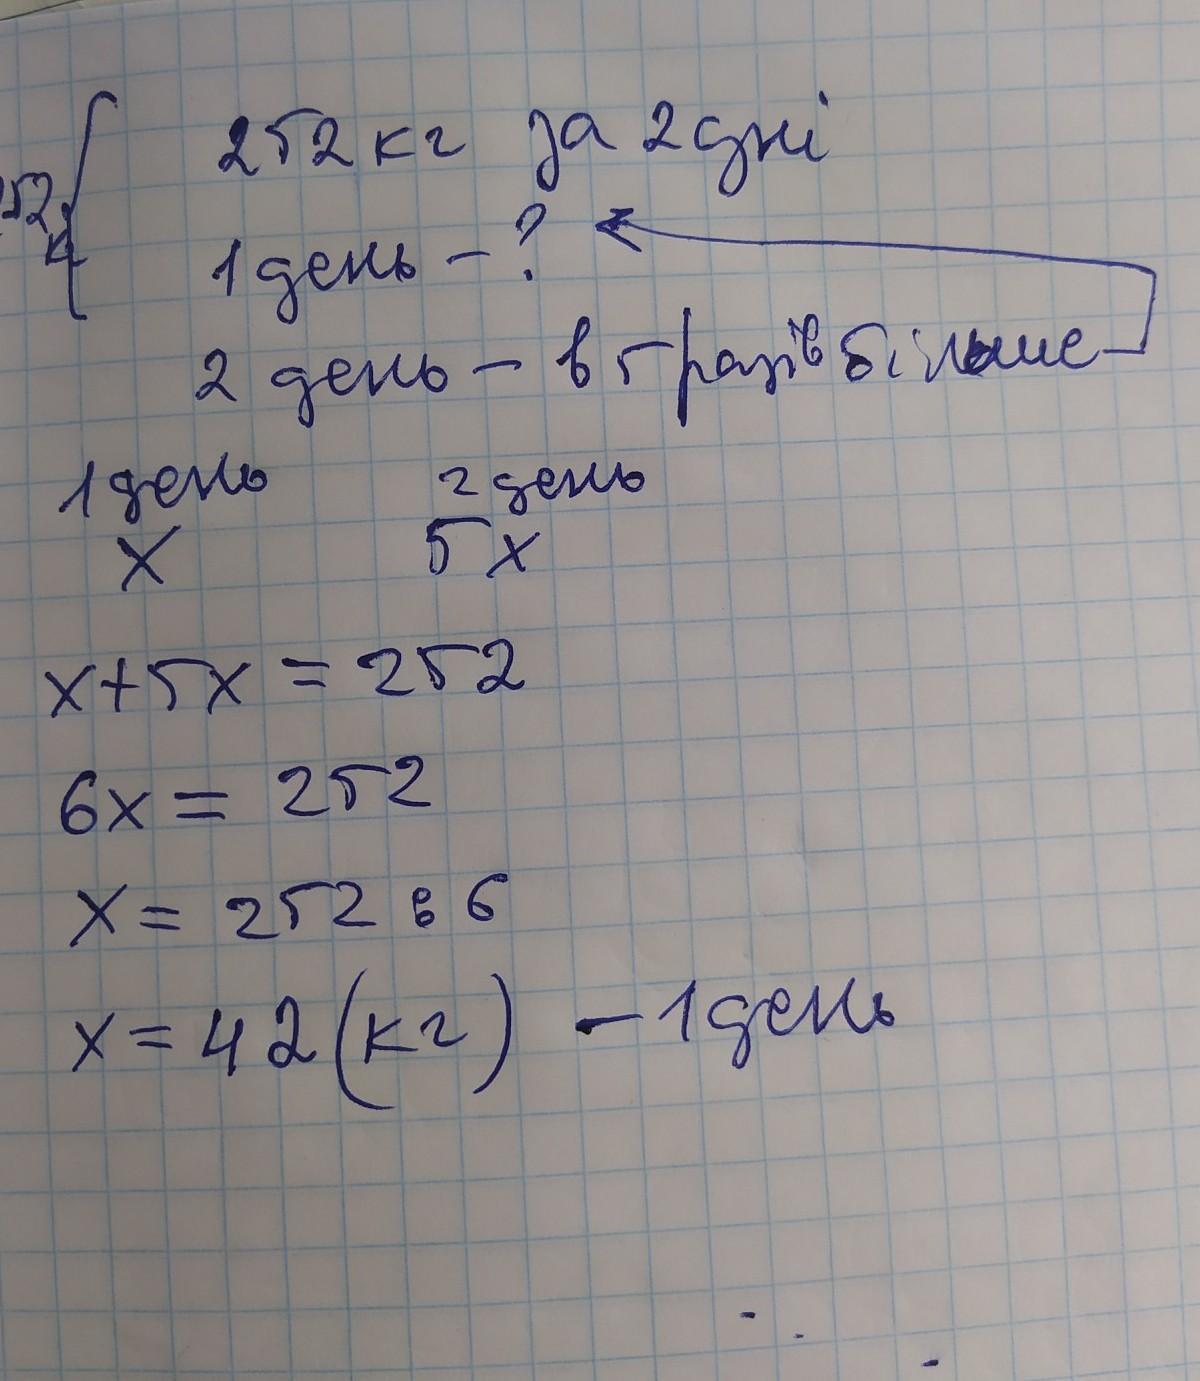 252 кг за 2 дні
252 к
1 день - ?
2 день - в 5 разів більше
1 день 2 день
x 5x
x+5x = 252
6x = 252
x = 252 : 6
x = 42 (кг) - 1 день